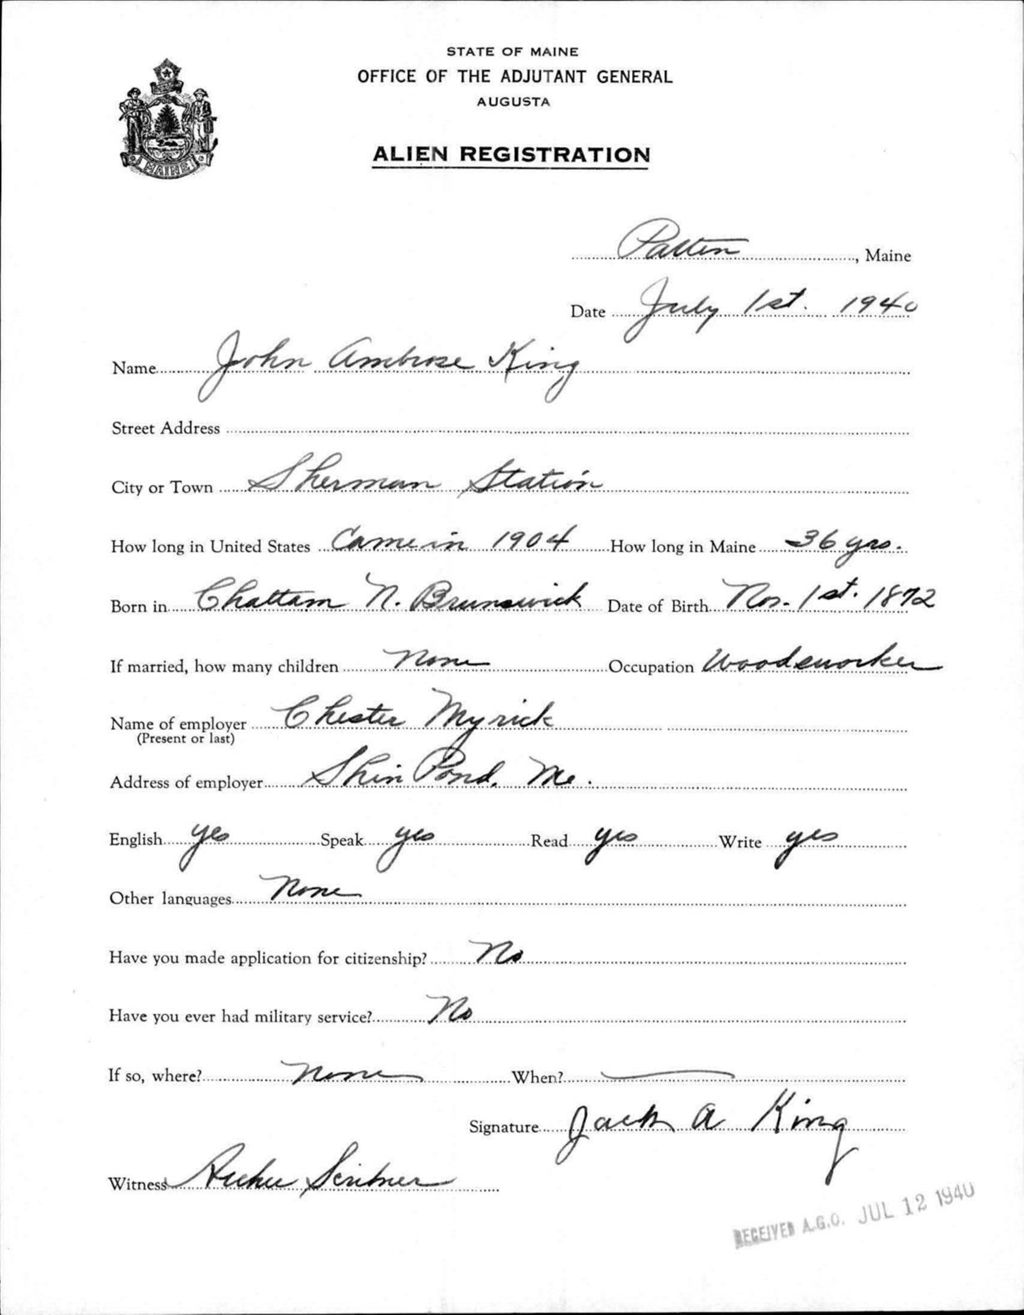 STATE OF MAINE
OFFICE OF THE ADJUTANT GENERAL
AUGUSTA
ALIEN REGISTRATION
MAINE
Patten, Maine
Date July 1st. 1940
Name John Ambrose King
Street Address
City or Town Sherman Station
How long in United States Came in 1904 How long in Maine 36 yrs.
Born in Chattam N. Brunswick Date of Birth Nov. 1st. 1872
If married, how many children None Occupation Woodsworker
Name of employer Chester Myrick
(Present or last)
Address of employer Shin Pond, Me.
English yes Speak yes Read yes Write yes
Other languages None
Have you made application for citizenship? No
Have you ever had military service? No
If so, where? None When? —
Signature Jack A King
Witness Scribner
RECEIVED A.G.O. JUL 12 1940